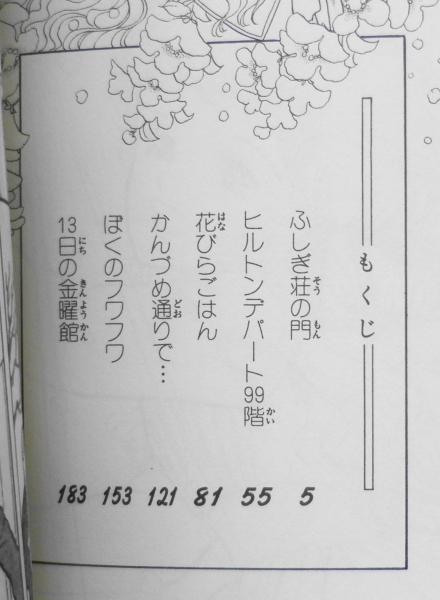 もくじ
ふしぎ荘の門 5
ヒルトンデパート99階 55
花びらごはん 81
かんづめ通りで… 121
ぼくのフワフワ 153
13日の金曜館 183